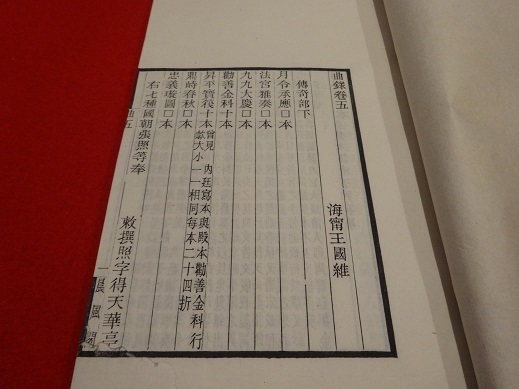 曲錄卷五
海甯王國維
傳奇部下
月令承應囗本
法宮雅奏囗本
九九大慶囗本
勸善金科十本
昇平寶筏十本 曾見內廷寫本與殿本勸善金科行
款大小一一相同每本二十四折
鼎峙春秋囗本
忠義璇圖囗本
右七種國朝張照等奉
敕撰照字得天華亭
曲五
一
晨風閣